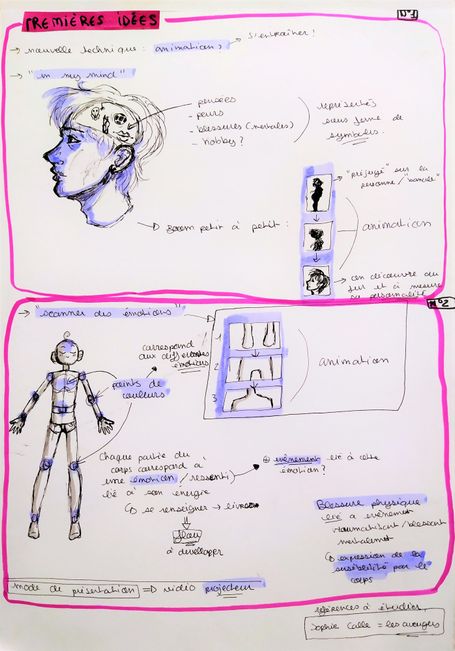 PREMIÈRES IDÉES
N°1
→ nouvelle technique : animation → s'entraîner !
→ "in my mind"
- pensées
- peurs
- blessures (mentales)
- hobby ?
représentés
sous forme de
symboles.
→ zoom petit à petit :
"préjugé" sur la
personne / "banale"
animation
→ on découvre au
fur et à mesure
sa personnalité
N°2
→ "scanner des émotions"
correspond
aux différentes
émotions
1
2
3
animation
points de
couleurs
Chaque partie du
corps correspond à
une émotion / ressenti
lié à son énergie
→ se renseigner → livre
flou
à développer
⊕ évènement lié à cette
émotion ?
Blessure physique
lié a evènement
traumatisant / blessant
mentalement
→ expression de la
sensibilité par le
corps
mode de présentation ⇒ vidéo projecteur
références à étudier
Sophie Calle = les aveugles